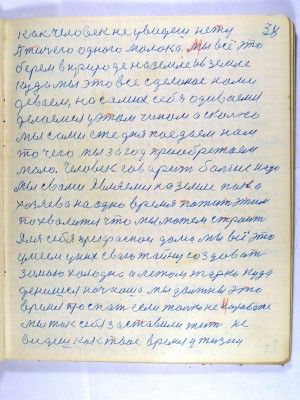 38
как человек не увидеш нету
птичего одного молока. Мы всё это
берем в природе на земле и в земле
куда мы это все сделоное нами
деваем, на самих себя одиваем и
делаемся у этом чином а сколко
мы сами сие дня поедаем нам
то чего мы за год приобретаем
мало. Человек говарит болше надо
мы с вами являемся на земле пака
хозяева на одно время пажить этим
похвалится что мы можем строит
для себя прекрасной дома мы всё это
умеем у них сваю тайну создоват
зимою холодно а летом жарко куда
денишся ночною мы должны это
время проспат если толко не на работе
мы так себя заставили жит не
видеш как твое время у тизни